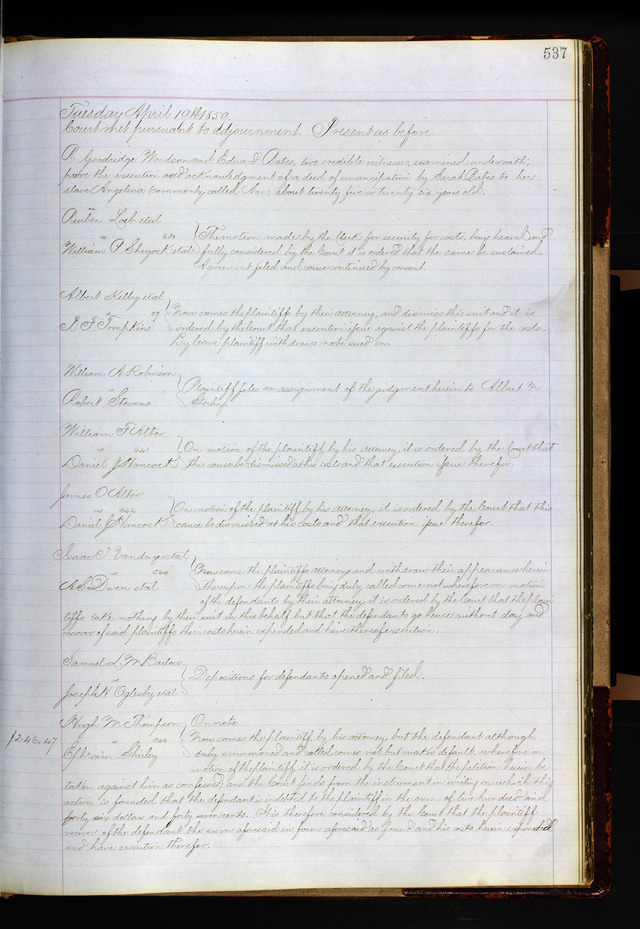 537
Tuesday April 19th 1859.
Court met pursuant to adjournment. Present as before.
A. Goodridge Woodson and Edward Oates, two credible witnesses, examined under oath;
prove the execution and acknowledgment of a deed of emancipation by Sarah Bates to her
slave Angelina (commonly called Ann) about twenty five or twenty six years old.
Reuben Loeb etal
The motion made by the Clerk for security for costs, being heard and
William P Shryock etal
fully considered by the Court it is ordered that the same be sustained
Agreement filed and cause continued by consent.
Albert Kelley etal
Now comes the plaintiffs by their attorney, and dismiss this suit and it is
D F Tompkins
ordered by the Court that execution issue against the plaintiffs for the costs.
By leave plaintiff withdraws note sued on.
William A Robinson
Plaintiff files an assignment of the judgment herein to Albert N
Robert Stevens
William F Alter
On motion of the plaintiff, by his attorney, it is ordered by the Court that
Daniel J Hancock
this cause be dismissed at his costs and that execution issue therefor.
James O Alter
On motion of the plaintiff by his attorney, it is ordered by the Court that this
Daniel J Hancock
cause be dismissed at his costs and that execution issue therefor.
Isaac T etal
Now come the plaintiffs attorneys and withdraw their appearance herein
A S Dwen etal
thereupon the plaintiffs being duly called come not wherefore on motion
of the defendants by their attorney, it is ordered by the Court that the plain
tiffs take nothing by their suit in this behalf but that the defendants go hence without day, and
recover of said plaintiffs their costs herein expended and have therefor execution.
Samuel L M Barlow
Depositions for defendants opened and filed.
Joseph H Oglesby etal
Hugh M Thompson On note
$246.47
Now comes the plaintiff, by his attorney, but the defendant although
Ephraim Shirley
duly summoned and called comes not but makes default wherefore on
motion of the plaintiff, it is ordered by the Court that the petition herein be
taken against him as confessed, and the Court finds from the instrument in writing on which this
action is founded that the defendant is indebted to the plaintiff in the sum of two hundred and
forty six dollars and forty seven cents. It is therefore considered by the Court that the plaintiff
recover of the defendant the sum aforesaid in form aforesaid as found and his costs herein expended
and have execution therefor.